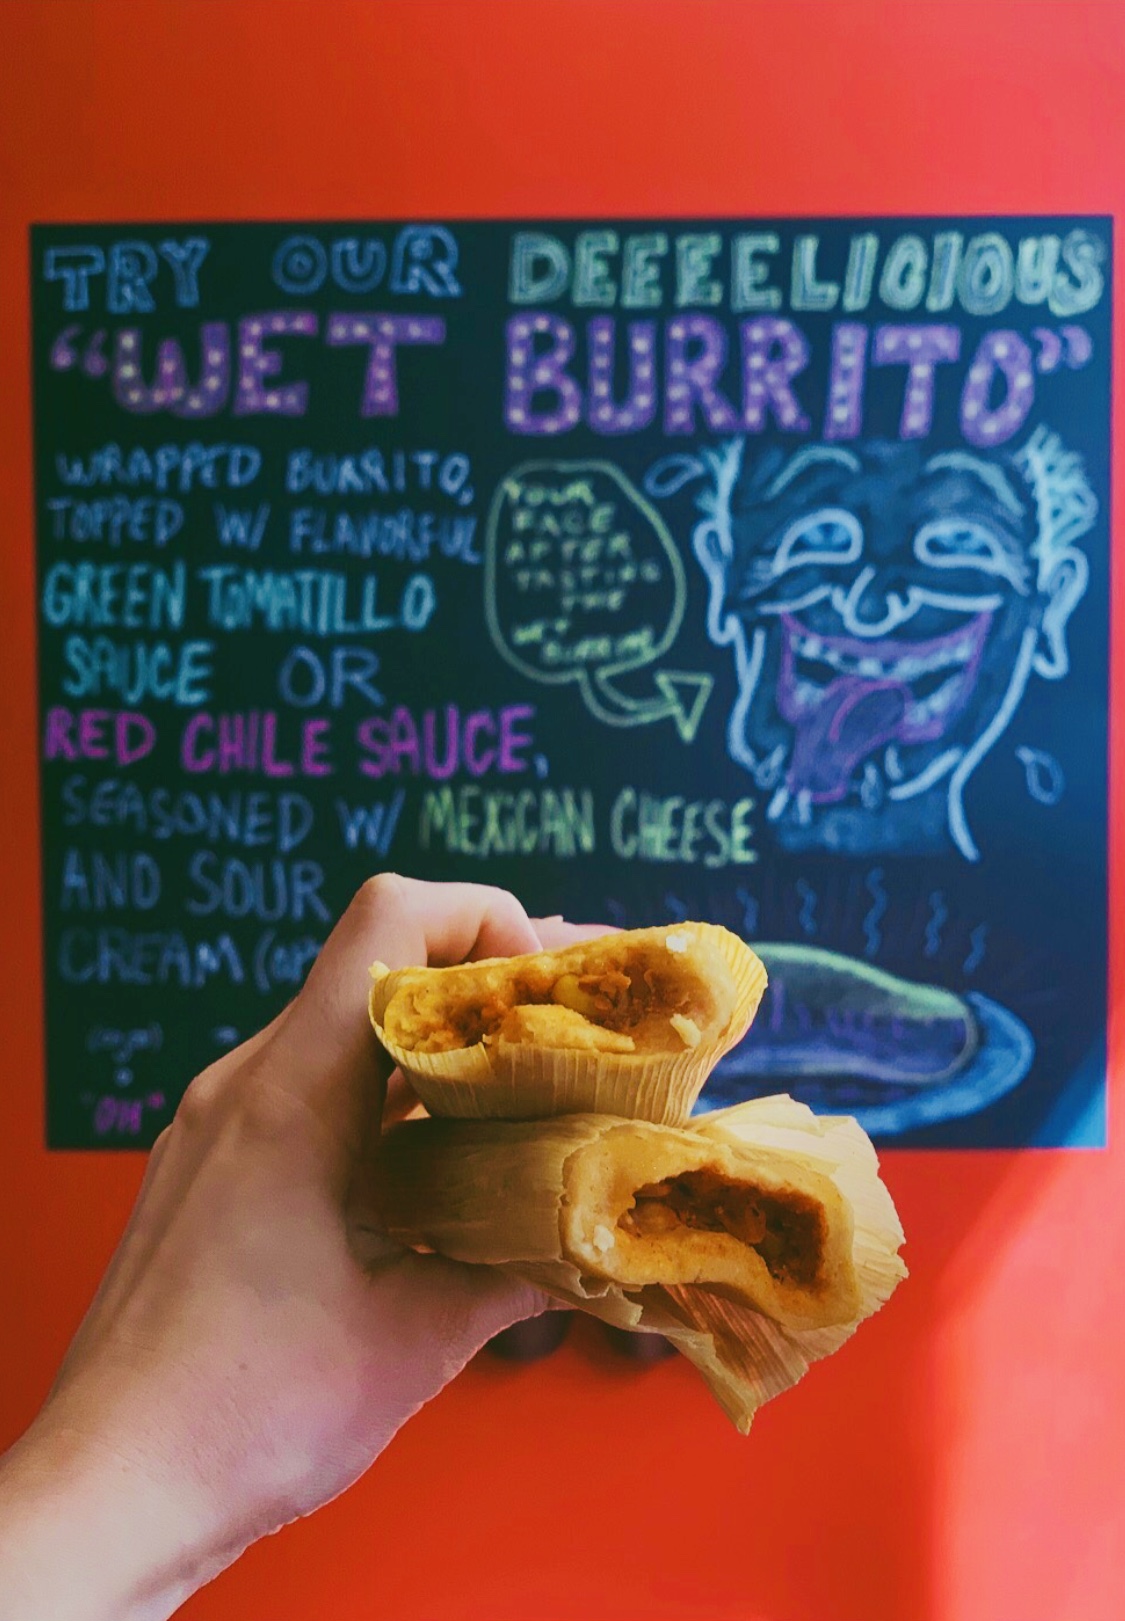 TRY OUR DEEEELICIOUS
“WET BURRITO”
WRAPPED BURRITO,
TOPPED W/ FLAVORFUL
GREEN TOMATILLO
SAUCE OR
RED CHILE SAUCE,
SEASONED W/ MEXICAN CHEESE
AND SOUR
CREAM
YOUR
FACE
AFTER
TASTING
THE
WET
BURRITO